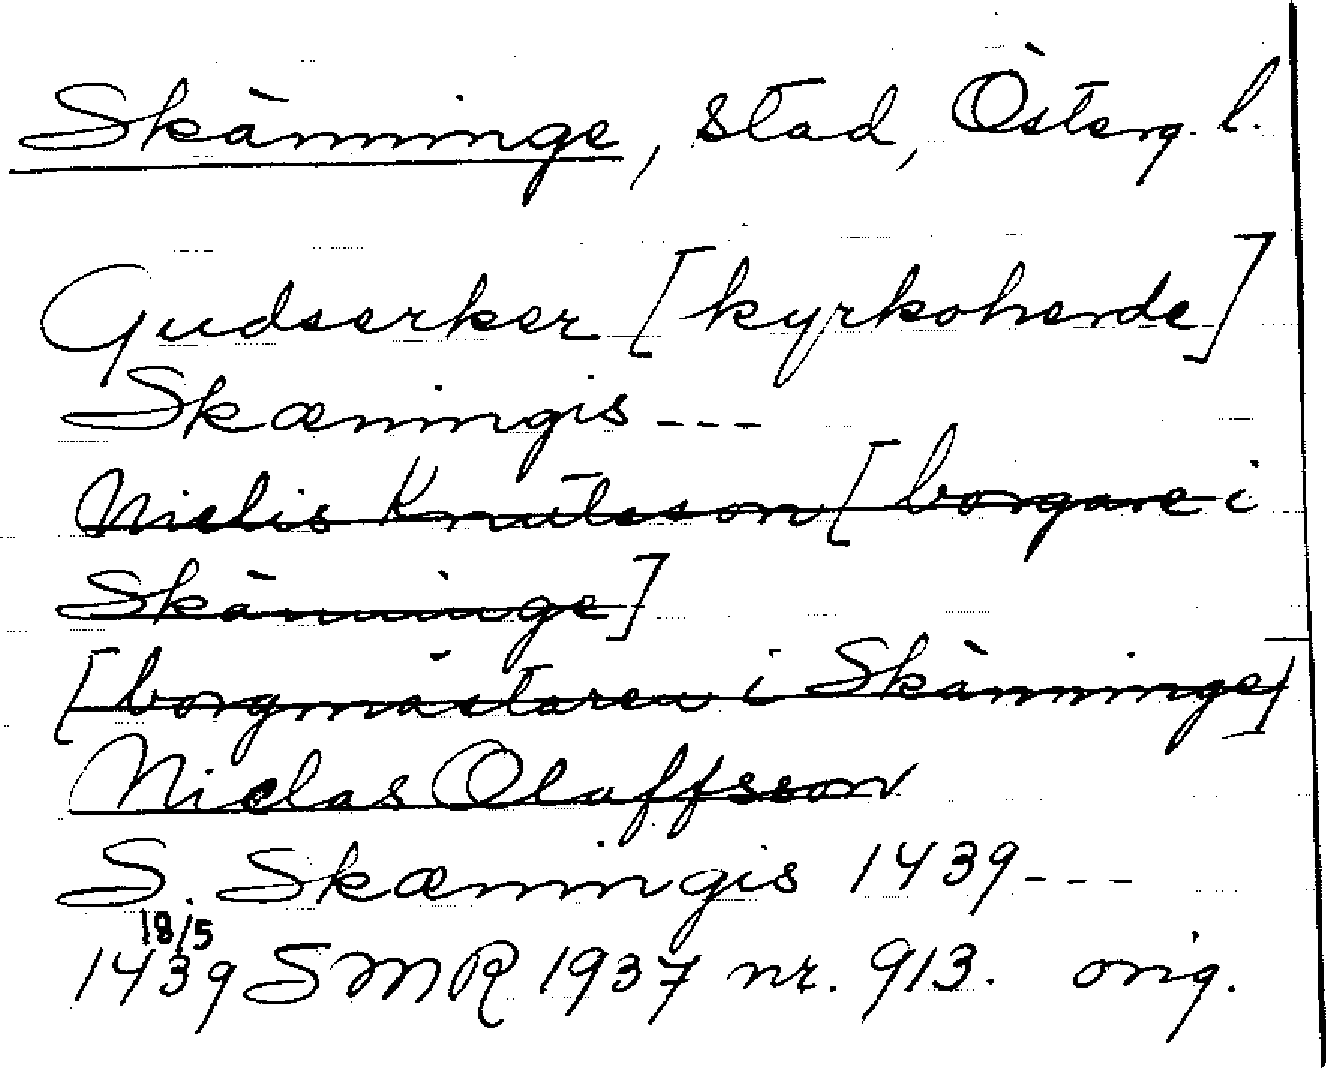 Skänninge, stad, Österg. l.
Gudserker [kyrkoherde]
Skæningis ---
Nielis Knutsson [borgare i
Skänninge]
[borgmästaren i Skänninge]
Niclas Olaffsson
S. Skæningis 1439 ---
18/5
1439 SMR 1937 nr. 913. orig.